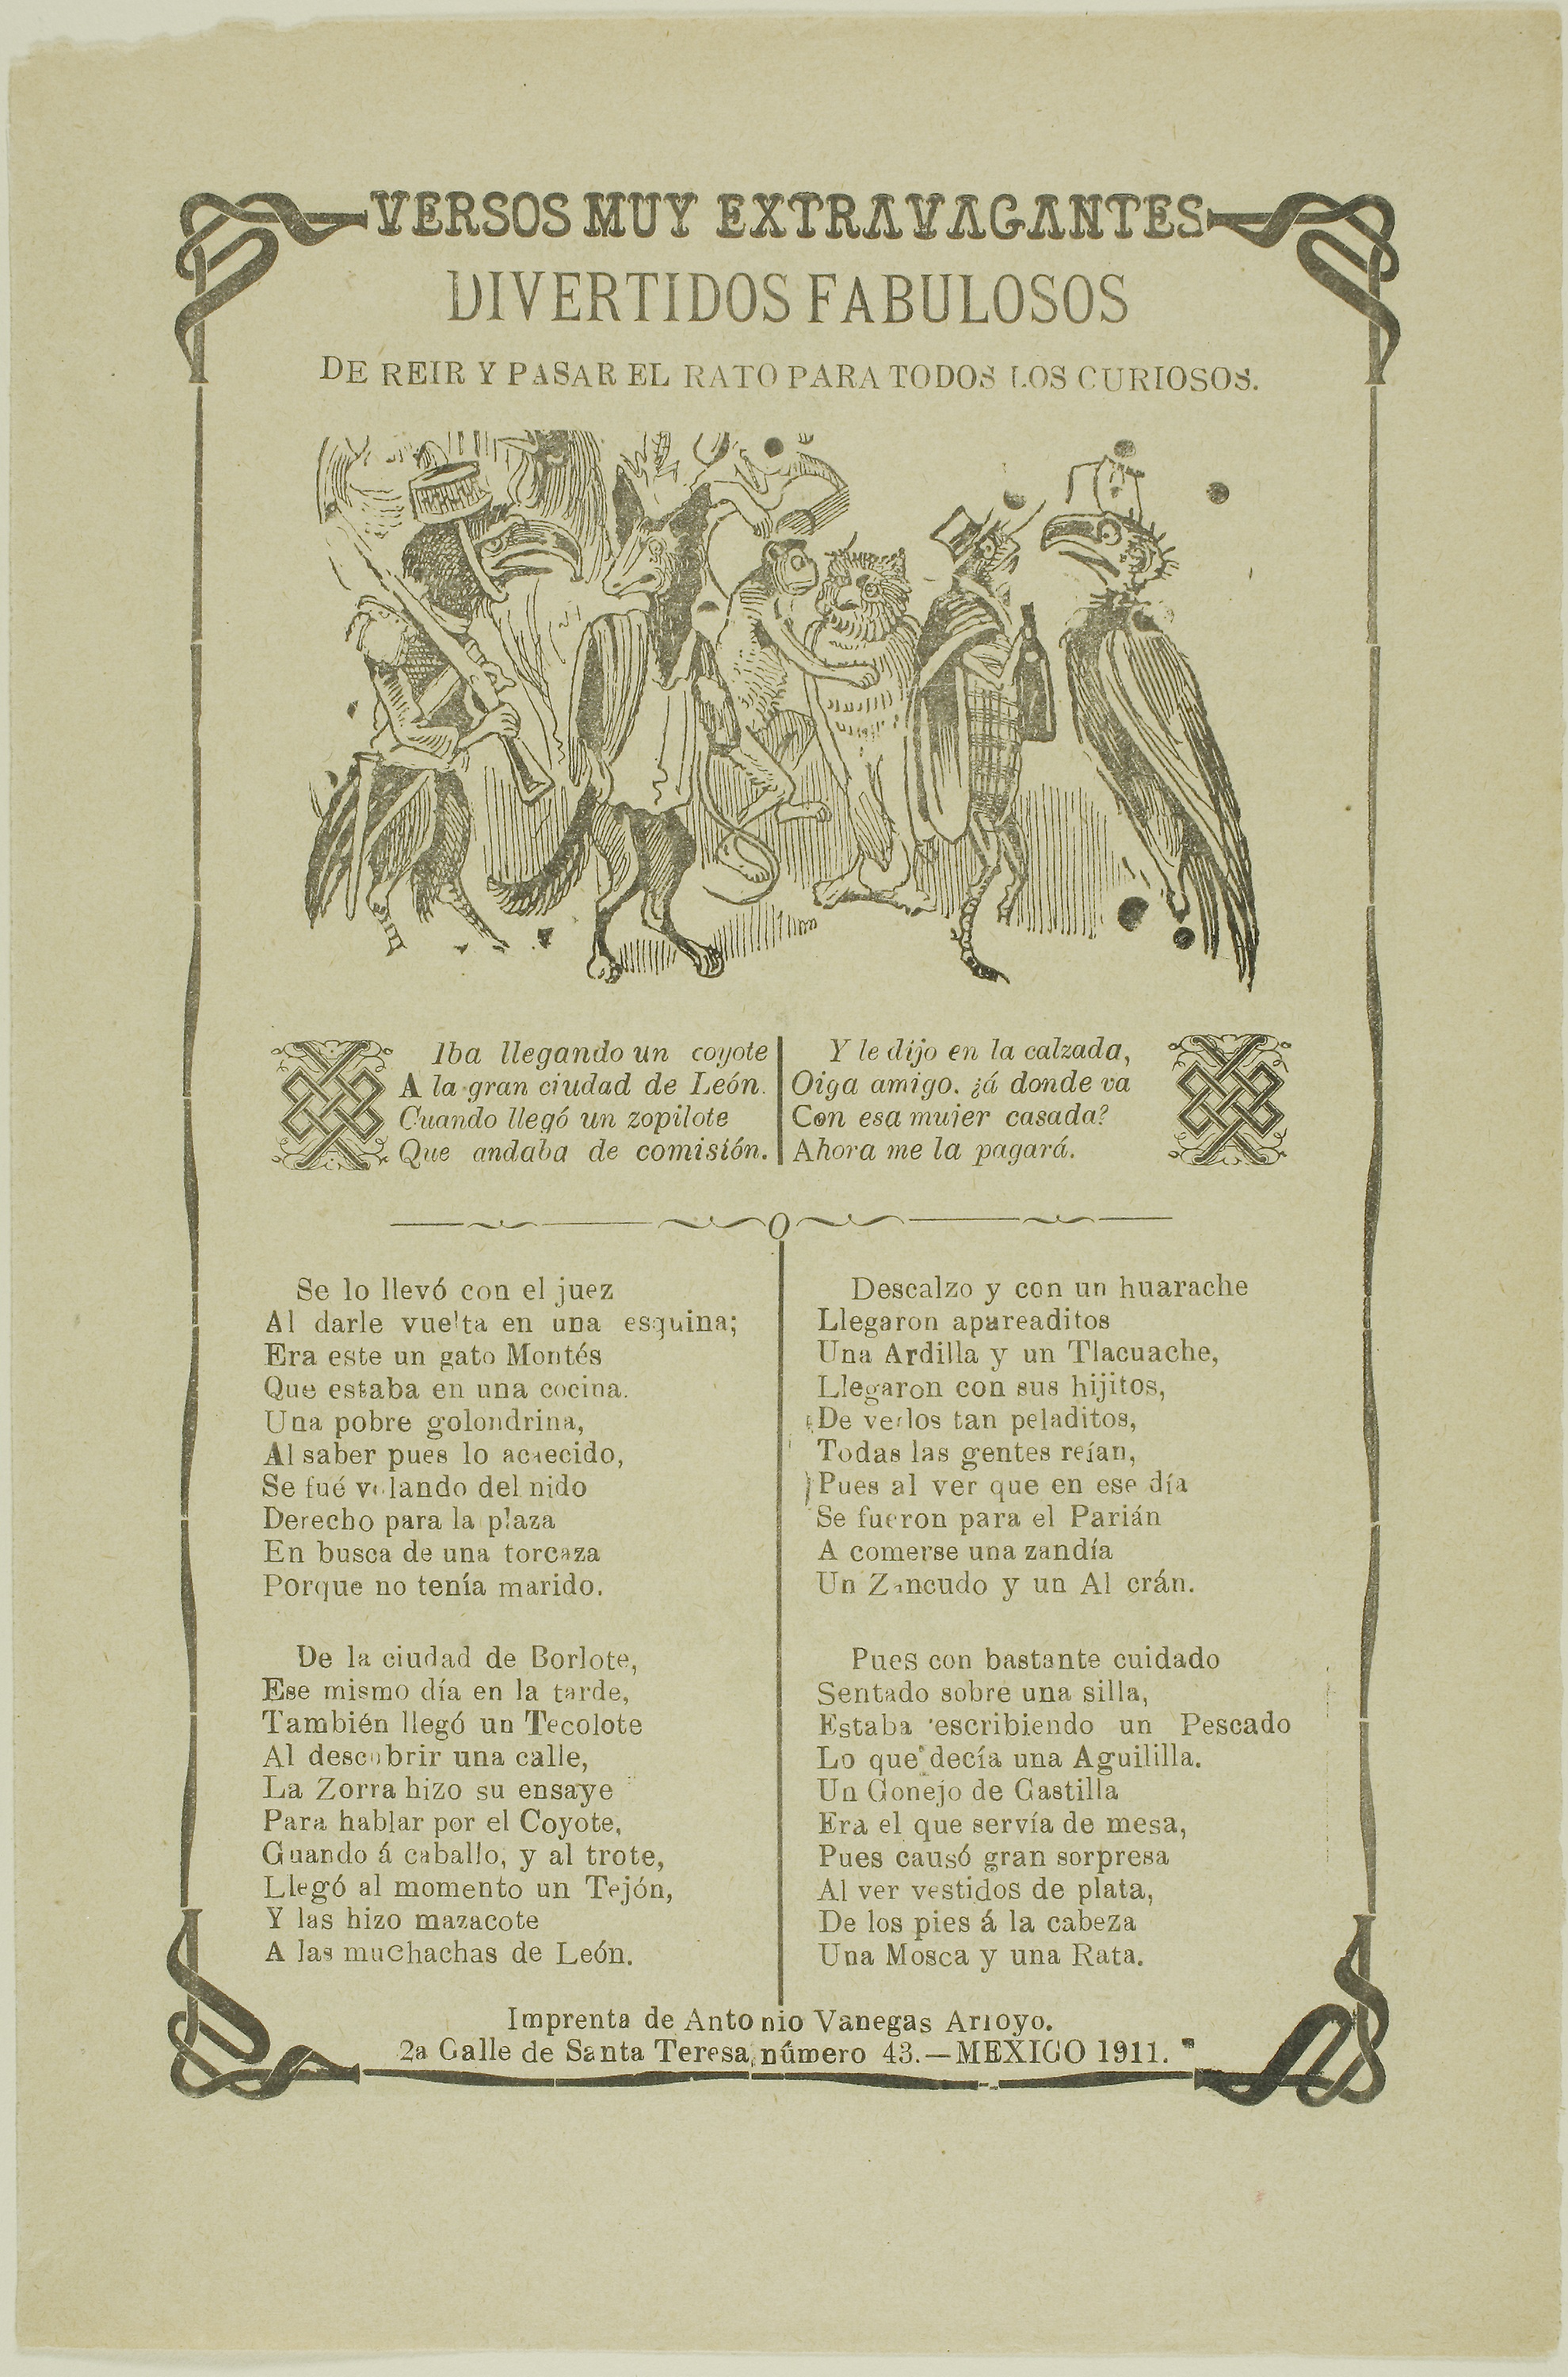 VERSOS MUY EXTRAVAGANTES
DIVERTIDOS FABULOSOS
DE REIR Y PASAR EL RATO PARA TODOS LOS CURIOSOS.
Iba llegando un coyote
A la gran ciudad de León.
Cuando llegó un zopilote
Que andaba de comisión.
Y le dijo en la calzada,
Oiga amigo. ¿á donde va
Con esa mujer casada?
Ahora me la pagará.
Se lo llevó con el juez
Al darle vuelta en una esquina;
Era este un gato Montés
Que estaba en una cocina.
Una pobre golondrina,
Al saber pues lo acaecido,
Se fué volando del nido
Derecho para la plaza
En busca de una torcaza
Porque no tenía marido.
De la ciudad de Borlote,
Ese mismo día en la tarde,
También llegó un Tecolote
Al descubrir una calle,
La Zorra hizo su ensaye
Para hablar por el Coyote,
Guando á caballo, y al trote,
Llegó al momento un Tejón,
Y las hizo mazacote
A las muchachas de León.
Descalzo y con un huarache
Llegaron apareaditos
Una Ardilla y un Tlacuache,
Llegaron con sus hijitos,
De verlos tan peladitos,
Todas las gentes reían,
Pues al ver que en ese día
Se fueron para el Parián
A comerse una zandía
Un Zancudo y un Al crán.
Pues con bastante cuidado
Sentado sobre una silla,
Estaba escribiendo un Pescado
Lo que decía una Aguililla.
Un Gonejo de Gastilla
Era el que servía de mesa,
Pues causó gran sorpresa
Al ver vestidos de plata,
De los pies á la cabeza
Una Mosca y una Rata.
Imprenta de Antonio Vanegas Arroyo.
2a Galle de Santa Teresa, número 43.—MEXIGO 1911.